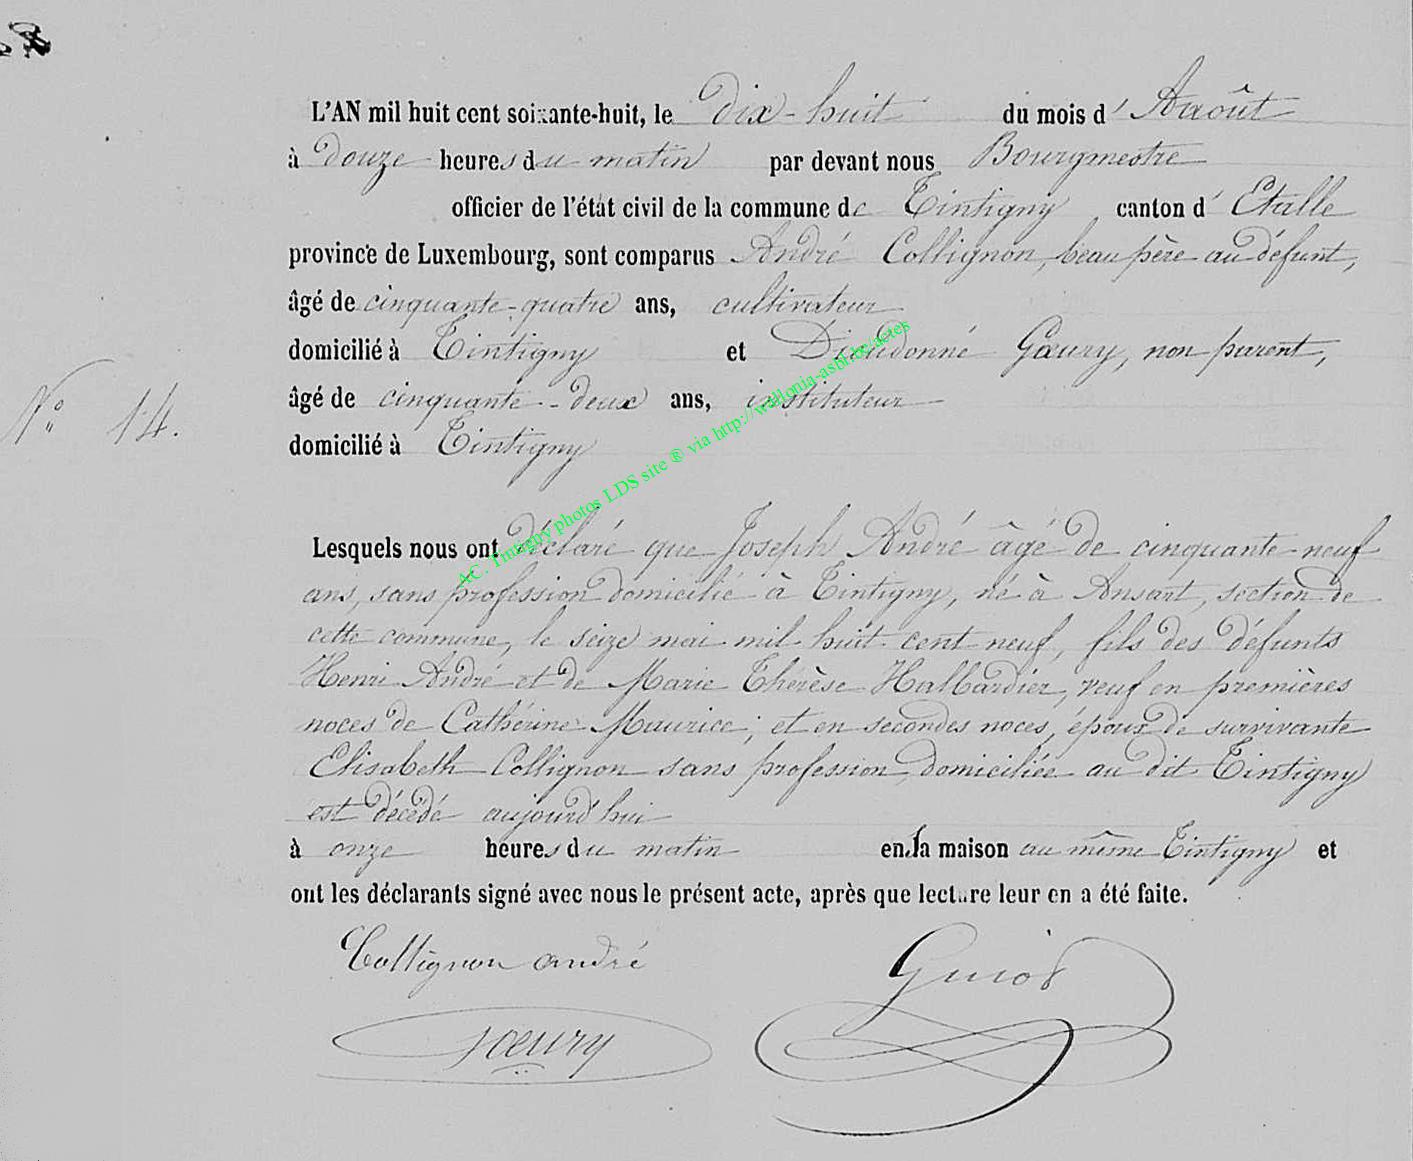 L'AN mil huit cent soixante-huit, le dix-huit du mois d'Aaoût
à douze heures du matin par devant nous Bourgmestre
officier de l'état civil de la commune de Tintigny canton d'Etalle
province de Luxembourg, sont comparus André Collignon, beau père au défunt,
âgé de cinquante-quatre ans, cultivateur
domicilié à Tintigny et Dieudonné Gœury, non parent,
âgé de cinquante-deux ans, instituteur
Nº 14.
domicilié à Tintigny
Lesquels nous ont déclaré que Joseph André âgé de cinquante-neuf
ans, sans profession domicilié à Tintigny, né à Ansart, section de
cette commune, le seize mai mil huit cent neuf, fils des défunts
Henri André et de Marie Thérèse Halbardier, veuf en premières
noces de Cathérine Maurice; et en secondes noces, époux de survivante
Elisabeth Collignon sans profession, domiciliée au dit Tintigny
est décédé aujourd'hui
à onze heures du matin en la maison au même Tintigny et
ont les déclarants signé avec nous le présent acte, après que lecture leur en a été faite.
Collignon andré
Guiot
Gœury
AC. Tintigny photos LDS site ® via http://wallonia-asbl.be/actes